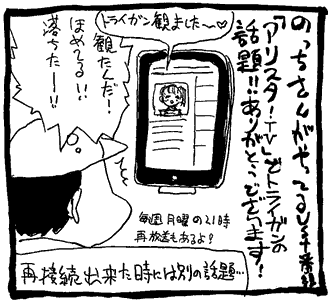 のっちさんがやってる生番組
「アリスターTV」でトライガンの
話題!!ありがとうございます!
トライガン観ました〜♡
観たんだ!
ほめてる!!
落ちたー!!
毎週月曜の21時
再放送もあるよ?
再接続出来た時には別の話題…